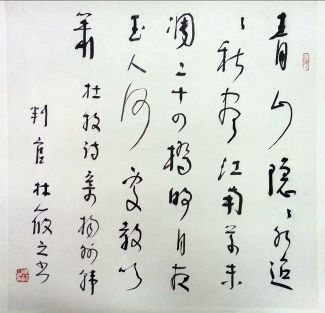 青山隐〻水迢
〻秋尽江南草未
凋二十四橋明月夜
玉人何處教吹
箫 杜牧诗寄揚州韩
判官 林筱之书